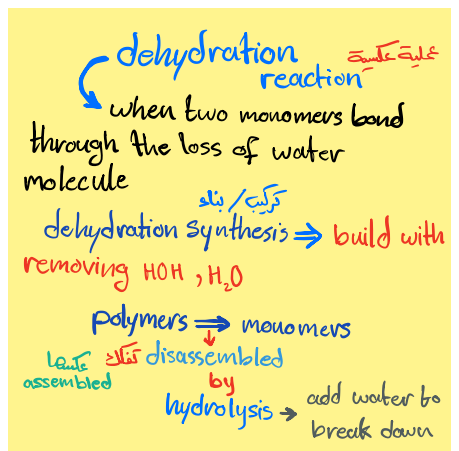 dehydration
reaction عملية عكسية
when two monomers bond
through the loss of water
molecule
تركيب / بناء
dehydration synthesis ⇒ build with
removing HOH , H₂O
polymers ⇒ monomers
عكسها تفكك disassembled
assembled by
hydrolysis → add water to
break down